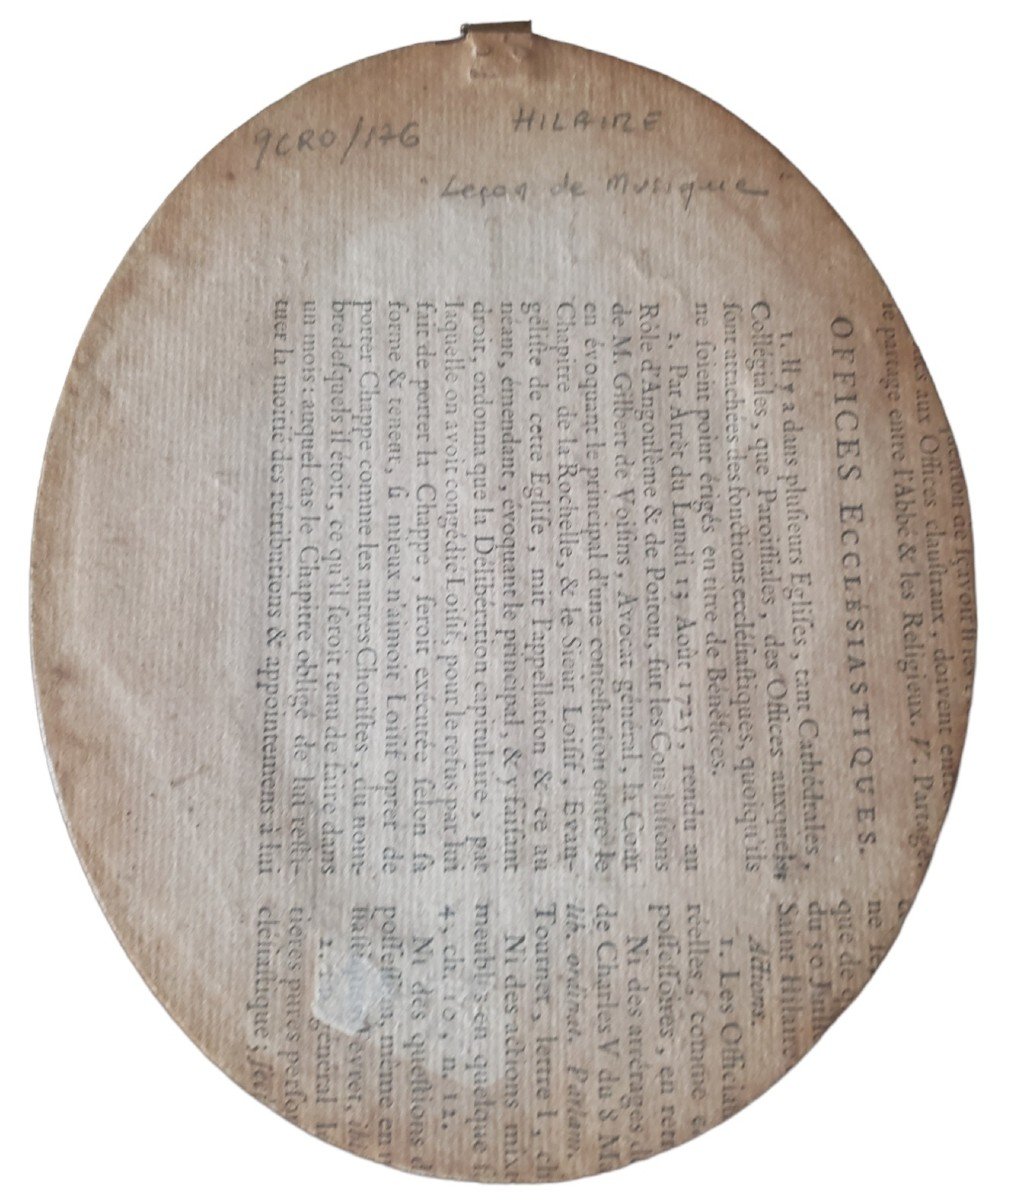 9CRO/176
HILAIRE
"Leçon de Musique"
aux Offices clauſtraux, doivent
le partage entre l'Abbé & les Religieux. V. Partage
OFFICES ECCLÉSIASTIQUES.
1. Il y a dans pluſieurs Egliſes, tant Cathédrales,
Collégiales, que Paroiſſiales, des Offices auxquels
ſont attachées des fonctions eccléſiaſtiques, quoiqu'ils
ne ſoient point érigés en titre de Bénéfices.
2. Par Arrêt du Lundi 13 Août 1725, rendu au
Rôle d'Angoulême & de Poitou, ſur les Concluſions
de M. Gilbert de Voiſins, Avocat général, la Cour
en évoquant le principal d'une conteſtation entre le
Chapitre de la Rochelle, & le Sieur Loiſif, Evan-
géliſte de cette Egliſe, mit l'appellation & ce au
néant, émendant, évoquant le principal, & y faiſant
droit, ordonna que la Délibération capitulaire, par
laquelle on avoit congédié Loiſif, pour le refus par lui
fait de porter la Chappe, ſeroit exécutée ſelon ſa
forme & teneur, ſi mieux n'aimoit Loiſif opter de
porter Chappe comme les autres Choriſtes, du nom-
bre deſquels il étoit, ce qu'il ſeroit tenu de faire dans
un mois: auquel cas le Chapitre obligé de lui reſti-
tuer la moitié des rétributions & appointemens à lui
que de
Saint Hilaire
Actions.
1. Les Officia
réelles, comme
poſſeſſoires, en
Ni des arrérages
de Charles V du 8
lib. ordinat. Parlam.
Tournet, lettre l, ch
Ni des actions
meubles en quelque
4, ch. 10, n. 12.
Ni des queſtions
même en
Fevret,
général
tieres pures
cléſiaſtique;